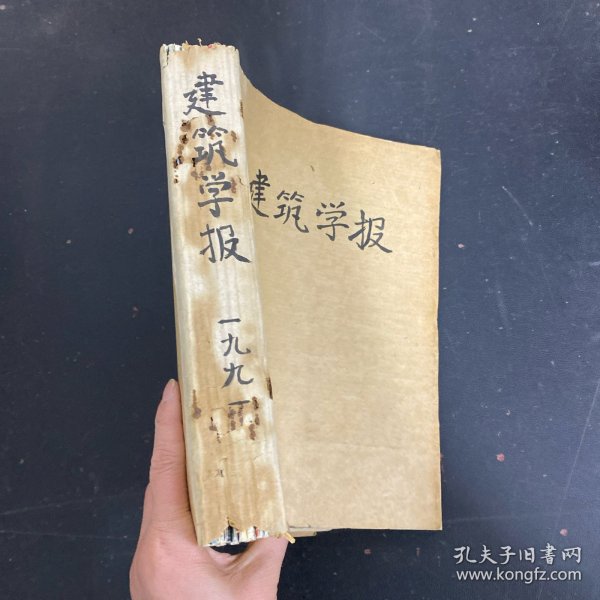 建筑学报
一九九一
建筑学报
孔夫子旧书网
www.kongfz.com